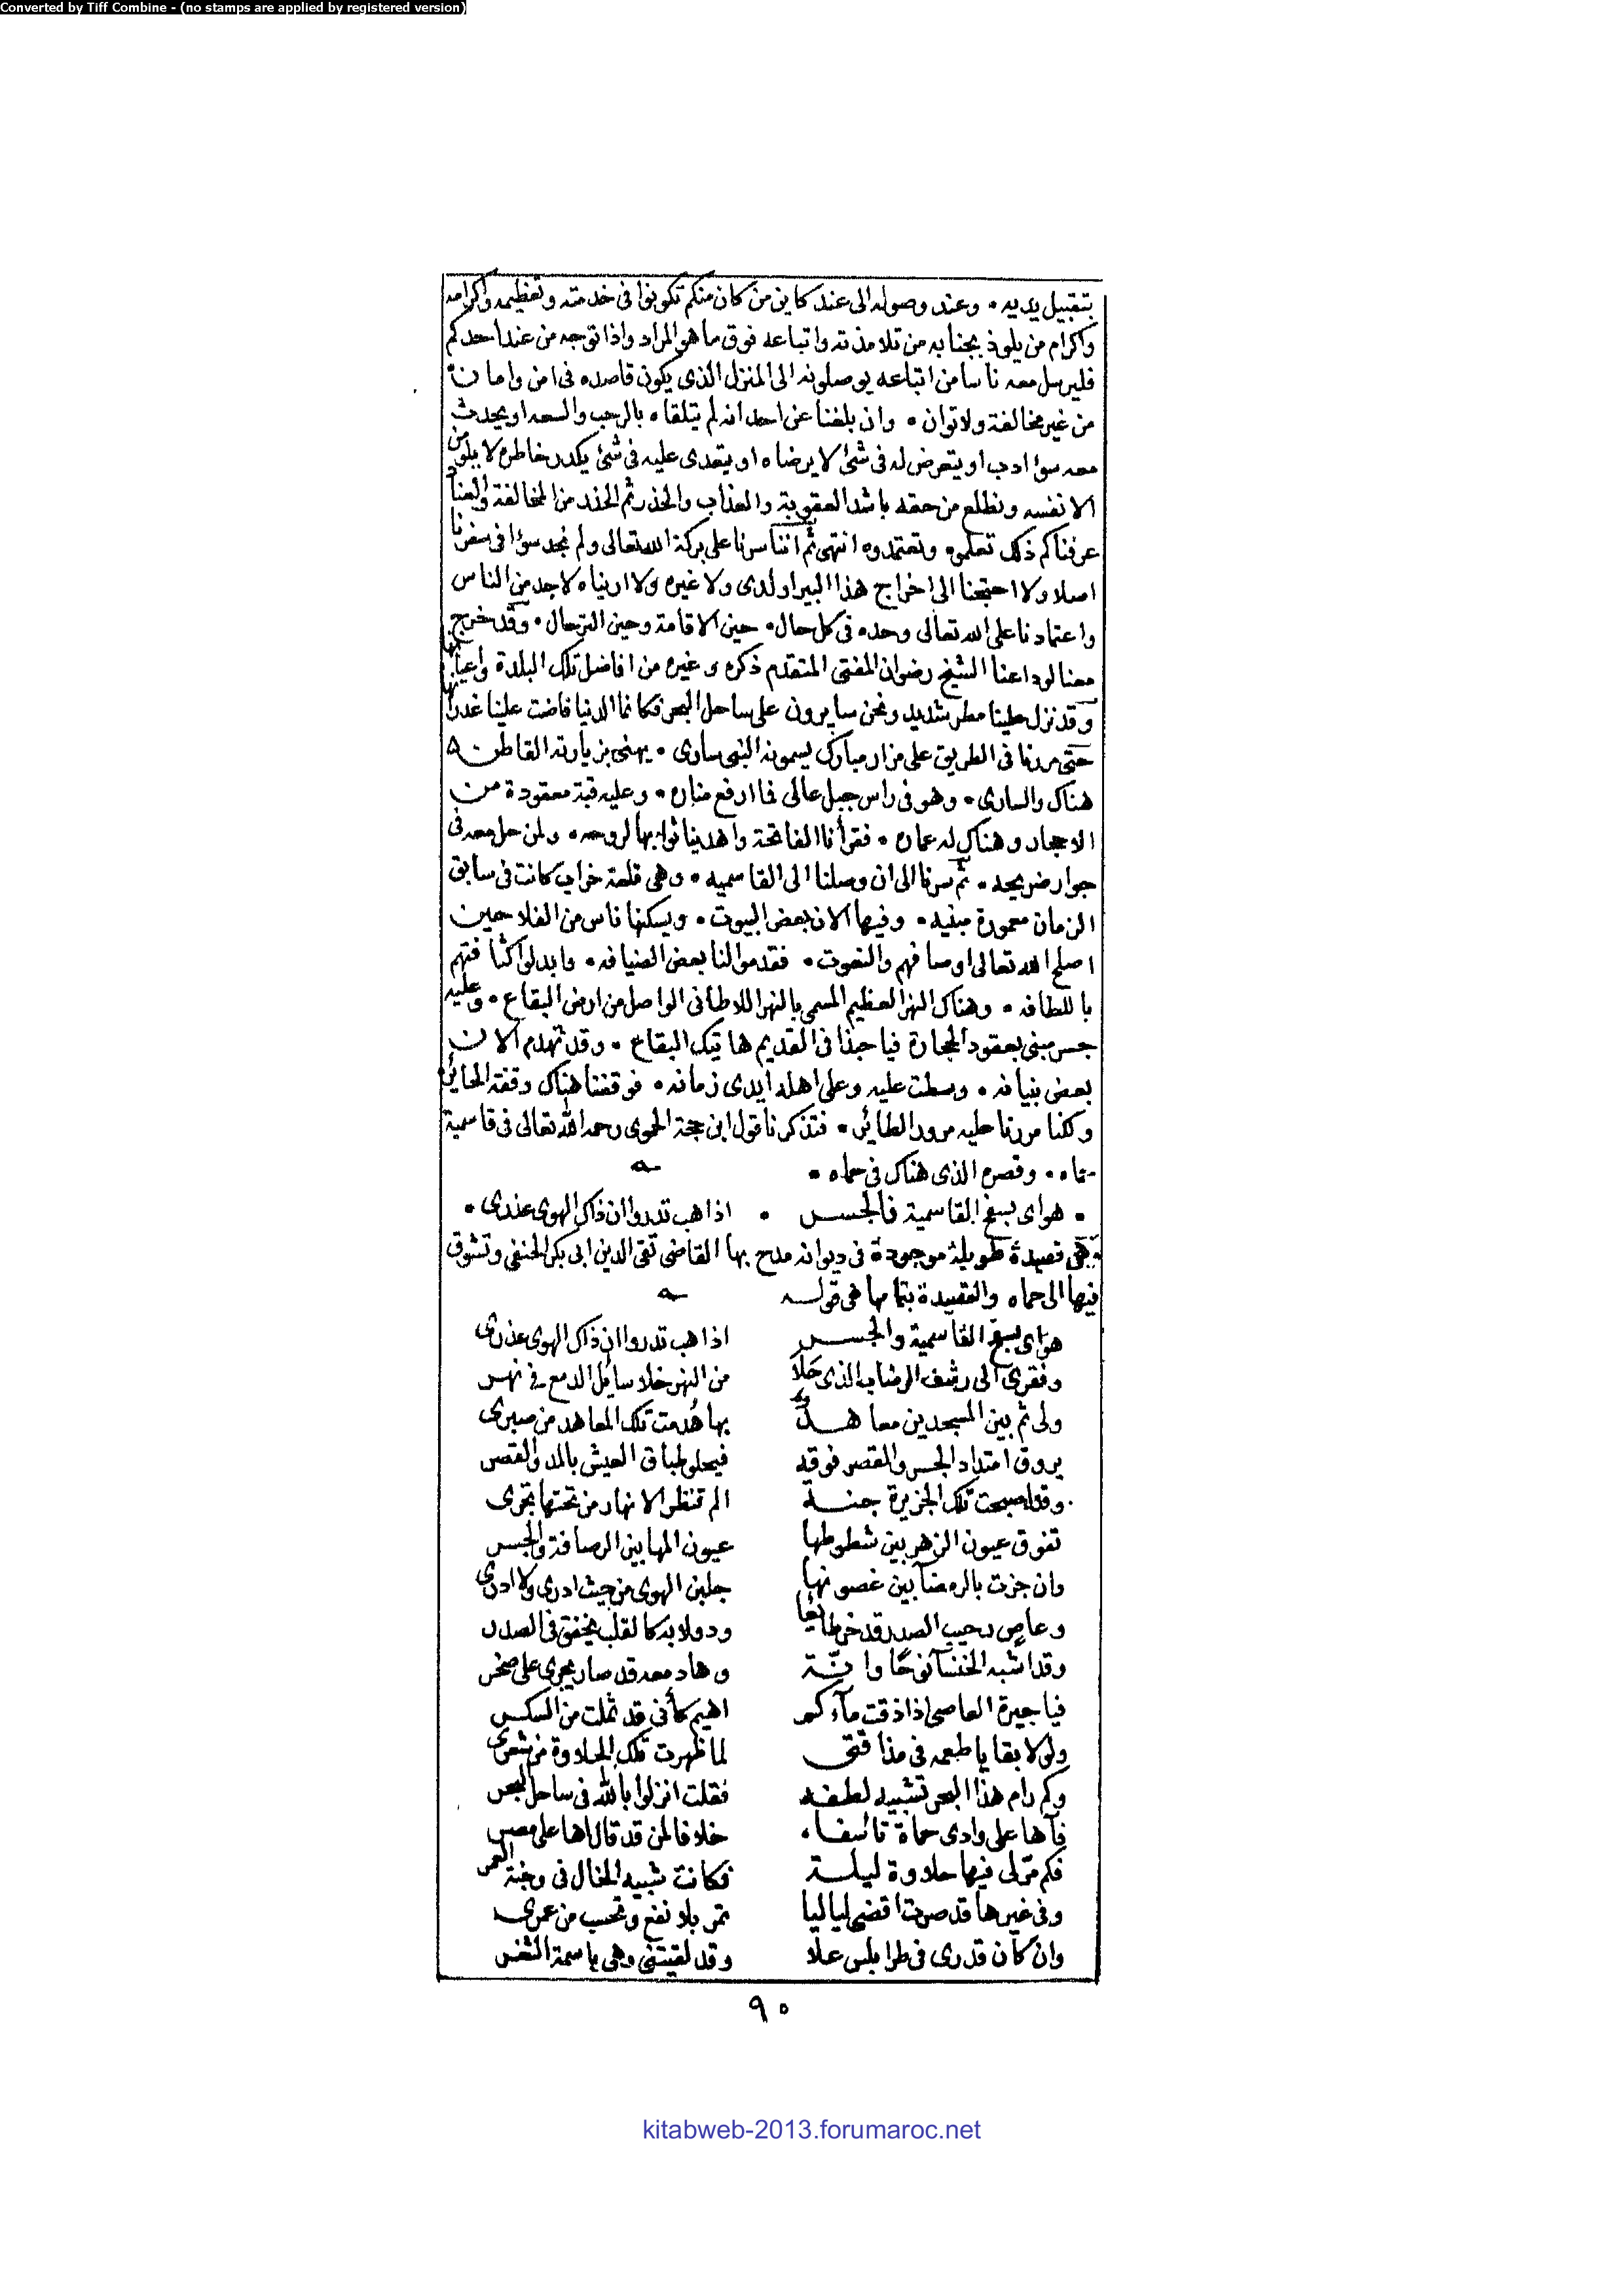 Converted by Tiff Combine - (no stamps are applied by registered version)
بتقبيل يديه • وعند وصوله الى عند كاين من كان منكم تكونوا فى خدمته وتعظيمه واكرامه
واكرام من يلوذ بجنابه من تلامذته واتباعه فوق ما هو المراد واذا توجه من عند احدكم
فليرسل معه ناسا من اتباعه يوصلونه الى المنزل الذى يكون قاصده فى امن وامان
من غير مخالفة ولا توان • وان بلغنا عن احد انه لم يتلقاه بالرحب والسعه او يحدث
معه سؤ ادب او يتعرض له فى شئ لا يرضاه او يتعدى عليه فى شئ يكدر خاطره لا يلومن
الا نفسه ونطلع من حقه باشد العقوبة والعذاب والحذر ثم الحذر من المخالفة والعناد
عرفناكم ذلك تعلموه وتعتمدوه انتهى ثم اننا سرنا على بركة الله تعالى ولم نجد سؤا فى سفرنا
اصلا ولا احتجنا الى اخراج هذا البيراولدى ولا غيره ولا اريناه لاحد من الناس
واعتمادنا على الله تعالى وحده فى كل حال • حين الاقامة وحين الترحال • وقد خرج
معنا لوداعنا الشيخ رضوان المفتى المتقدم ذكره وغيره من افاضل تلك البلدة واعيانها
وقد نزل علينا مطر شديد ونحن سايرون على ساحل البحر فكانما الدنيا فاضت علينا غدرانها
حتى مررنا فى الطريق على مزار مبارك يسمونه النبى سارى • يهنى بزيارته القاطن
هناك والسارى • وهو فى راس جبل عالى فما ارفع مناره • وعليه قبة معقودة من
الاحجار وهناك له عماره • فقرأنا الفاتحة واهدينا ثوابها لروحه • ولمن حل معه فى
جوار ضريحه • ثم سرنا الى ان وصلنا الى القاسميه • وهى قلعة خراب كانت فى سابق
الزمان معمورة مبنيه • وفيها الان بعض البيوت • ويسكنها ناس من الفلاحين
اصلح الله تعالى اوصافهم والنعوت • فقدموا لنا بعض الضيافه • وابدلوا كثافتهم
باللطافه • وهناك النهر العظيم المسمى بالنهر اللاطانى الواصل من ارض البقاع • وعليه
جسر مبنى بعقود الحجارة فيا حبذا فى القديم هاتيك البقاع • وقد تهدم الان
بعض بنيانه • وسطت عليه وعلى اهله ايدى زمانه • فوقفنا هناك وقفة الحائر
وكنا مررنا عليه مرور الطائر • فتذكرنا قول ابن حجة الحموى رحمه الله تعالى فى قاسمية
حماه • وقصره الذى هناك فى حماه •
• هواى بسفح القاسمية فالجسر • اذا هب تدروا ان ذاك الهوى عذرى •
وهى قصيدة طويلة موجودة فى ديوانه مدح بها القاضى تقى الدين ابى بكر الحنفى وتشوق
فيها الى حماه والقصيدة بتمامها هى قوله
هواى بسفح القاسمية والجسر اذا هب تدروا ان ذاك الهوى عذرى
وفقرى الى رشف الرضاب الذى حَلَا من النهر خلا سايل الدمع فى نهر
ولى ثم بين المسجدين معاهد بها هُدمت تلك المعاهد من صبرى
يروق امتداد الجسر والقصر فوقه فيحلو لطباق العيش بالمد والقصر
وقد اصبحت تلك الجزيرة جنة الم تنظر الانهار من تحتها تجرى
تفوق عيون الزهر بين شطوطها عيون المها بين الرصافة والجسر
وان جزت بالرمضآ بين غصونها جلبن الهوى من حيث ادرى ولا ادرى
وعاصٍ رحيب الصدر قد خر طائعا ودولابه كالقلب يخفق فى الصدر
وقد اشبه الخنسآ نوحا وانّة وها دمعه قد صار يجرى على صخر
فيا جيرة العاصى اذا ذقت مآءكم اهيم كأنى قد ثملت من السكر
ولولا بقايا طعمه فى مذاقتى لما ظهرت تلك الحلاوة من شعرى
وكم رام هذا البحر تشبيه لطفه فقلت انزلوا بالله فى ساحل البحر
فآها على وادى حماة تاسفا، خلافا لمن قد قال اها على مصر
فكم مرّ لى فيها حلاوة ليلة فكانت شبيه الخال فى وجنة العمر
وفى غيرها قد صرت اقضى لياليا تمر بلا نفع وتحسب من عمرى
وان كان قدرى فى طرابلس علا وقد لقيتنى وهى باسمة الثغر
٩٠
kitabweb-2013.forumaroc.net